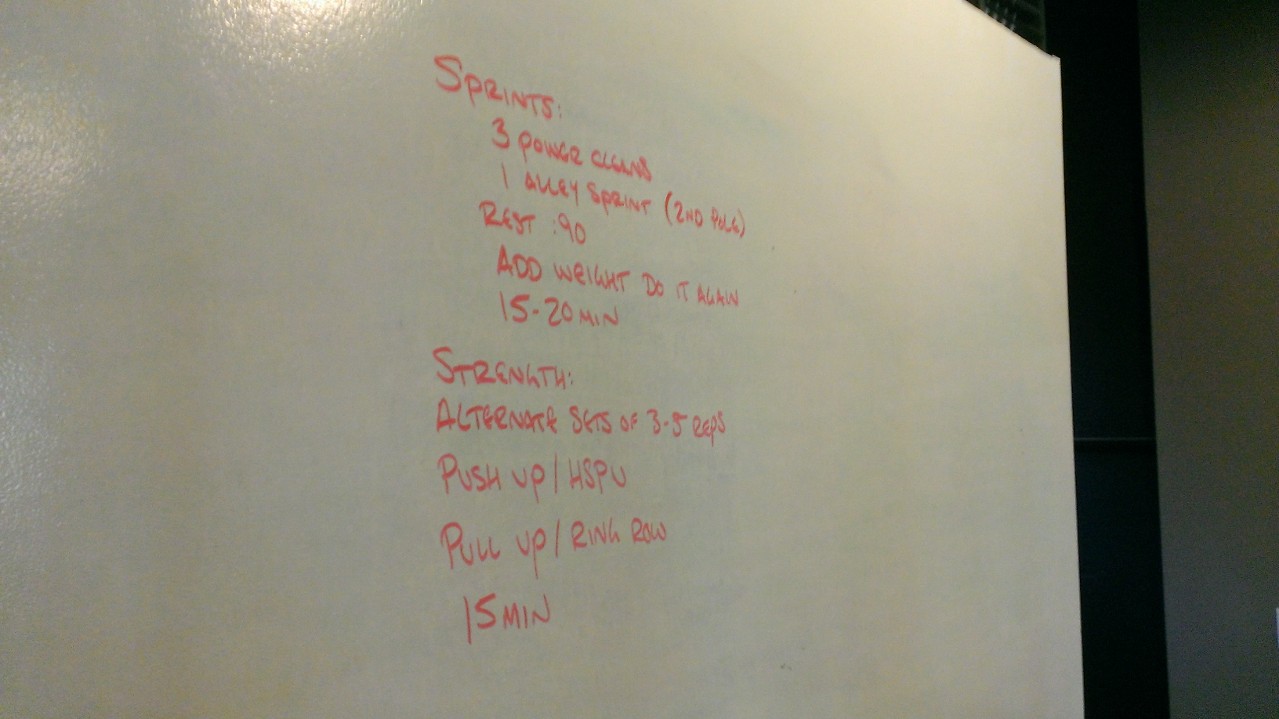 SPRINTS:
3 POWER CLEANS
1 ALLEY SPRINT (2ND POLE)
REST :90
ADD WEIGHT DO IT AGAIN
15-20 MIN
STRENGTH:
ALTERNATE SETS OF 3-5 REPS
PUSH UP/HSPU
PULL UP/RING ROW
15 MIN